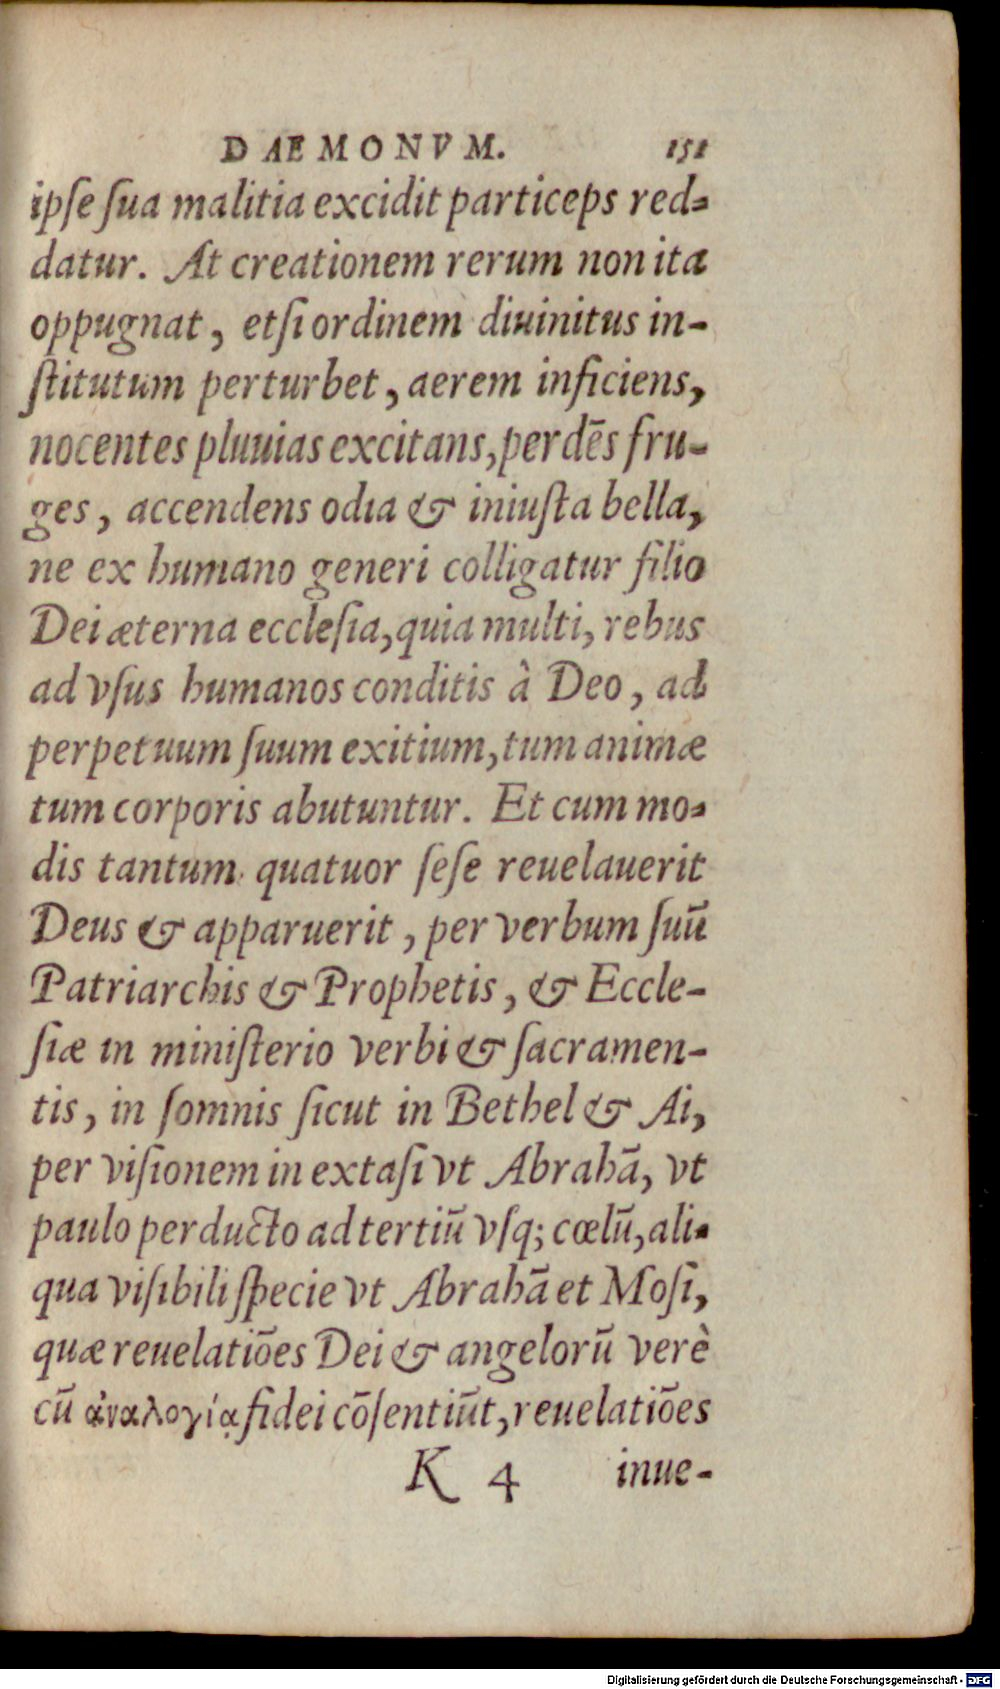 DAEMONVM. 151
ipse sua malitia excidit particeps red-
datur. At creationem rerum non ita
oppugnat, etsi ordinem diuinitus in-
stitutum perturbet, aerem inficiens,
nocentes pluuias excitans, perdēs fru-
ges, accendens odia & iniusta bella,
ne ex humano generi colligatur filio
Dei æterna ecclesia, quia multi, rebus
ad vsus humanos conditis à Deo, ad
perpetuum suum exitium, tum animæ
tum corporis abutuntur. Et cum mo-
dis tantum quatuor sese reuelauerit
Deus & apparuerit, per verbum suū
Patriarchis & Prophetis, & Eccle-
siæ in ministerio verbi & sacramen-
tis, in somnis sicut in Bethel & Ai,
per visionem in extasi vt Abrahā, vt
paulo perducto ad tertiū vsq; cœlū, ali-
qua visibili specie vt Abrahā et Mosi,
quæ reuelatiōes Dei & angelorū verè
cū ἀναλογίᾳ fidei cōsentiūt, reuelatiōes
K 4 inue-
Digitalisierung gefördert durch die Deutsche Forschungsgemeinschaft - DFG